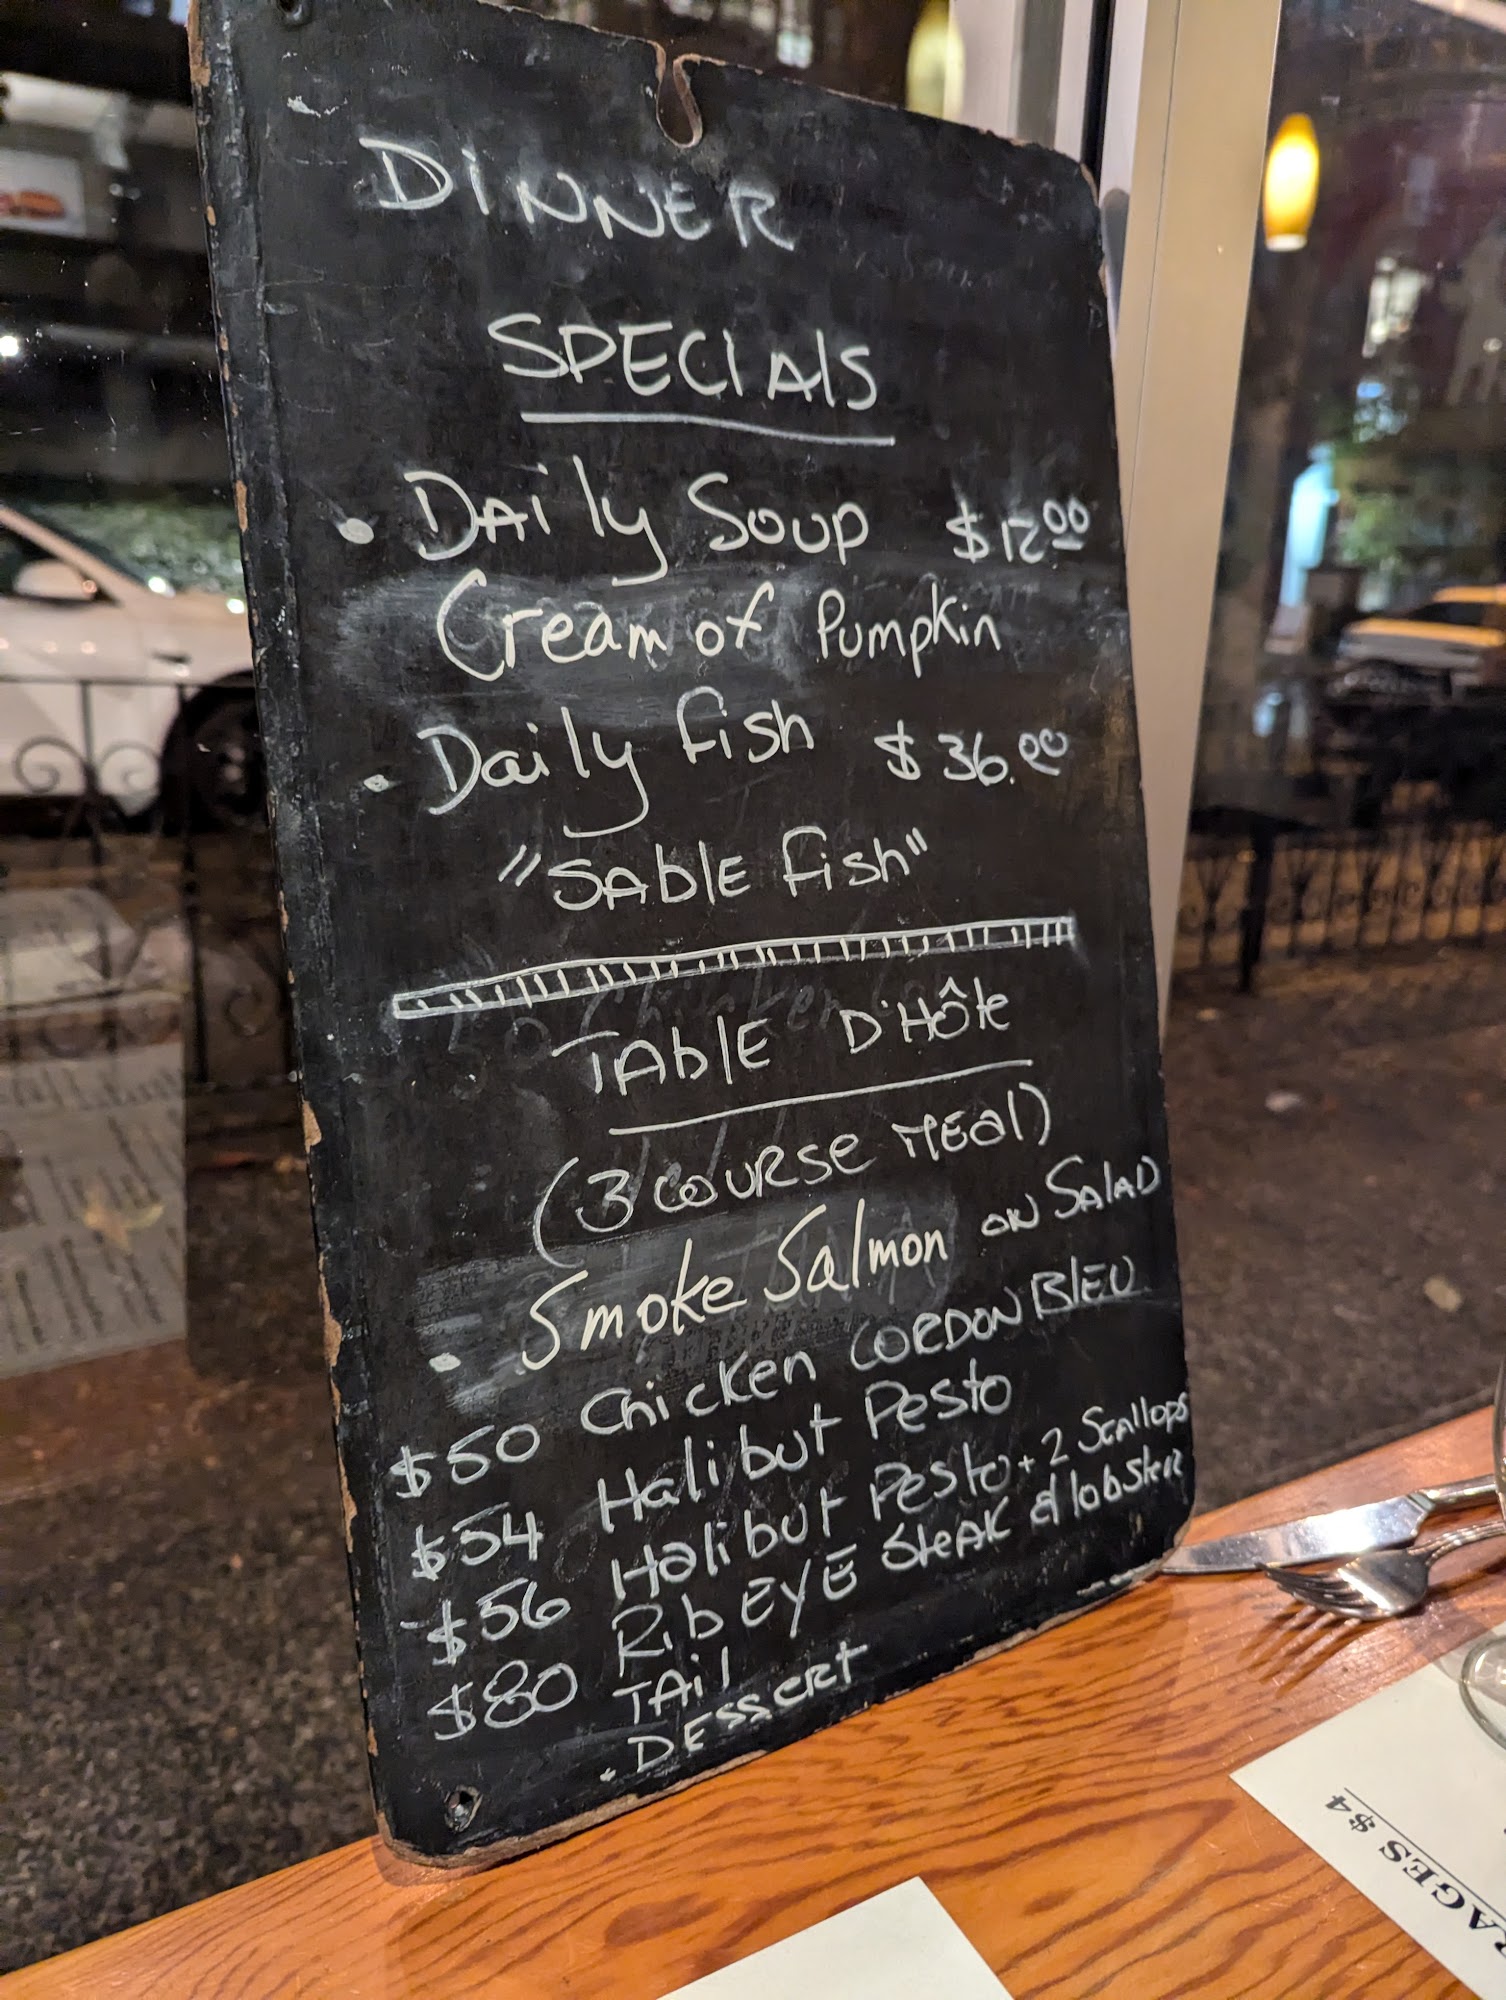 DINNER
SPECIALS
• Daily Soup $12.00
Cream of Pumpkin
• Daily fish $36.00
"SABLE fish"
TABLE D'HÔTE
(3 COURSE MEAL)
• Smoke Salmon ON SALAD
$50 Chicken CORDON BLEU
$54 Halibut Pesto
$56 Halibut Pesto + 2 Scallops
$80 Rib EYE Steak & lobster
TAil
• DESSERT
RAGES $4